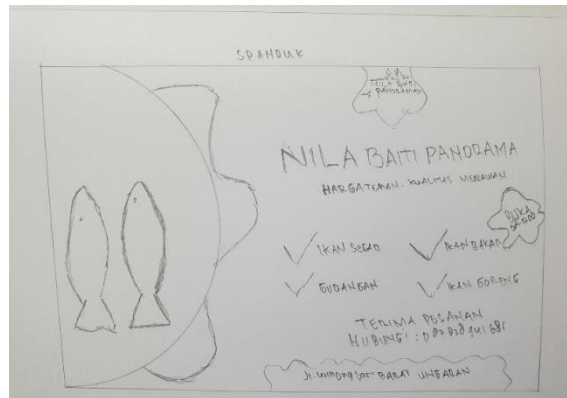 SPANDUK
NILA BAITI
PANORAMA
NILA BAITI PANORAMA
HARGA TEMAN, KUALITAS MENAWAN
BUKA
IKAN SEGAR
IKAN BAKAR
GUDANGAN
IKAN GORENG
TERIMA PESANAN
HUBUNGI :
Jl. BARAT UNGARAN